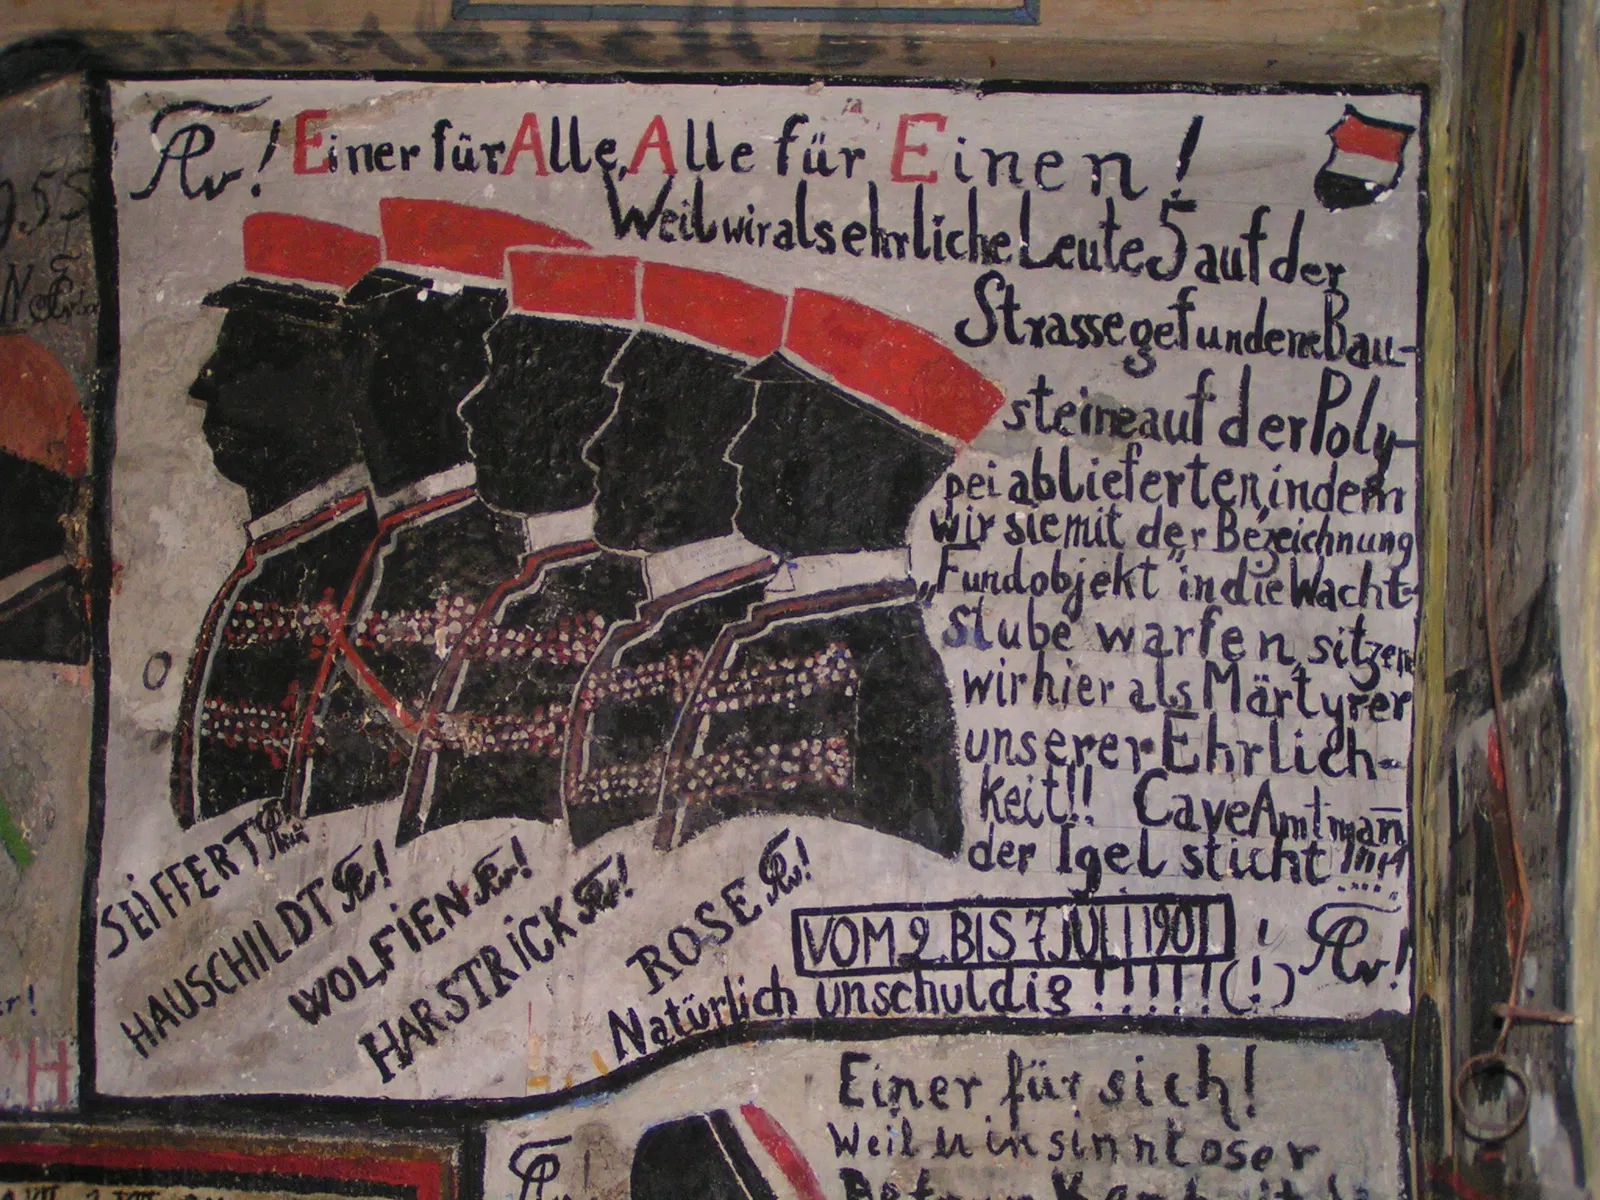 Einer für Alle, Alle für Einen!
Weil wir als ehrliche Leute 5 auf der
Strasse gefundene Bau-
steine auf der Poly-
pei ablieferten, indem
wir sie mit der Bezeichnung
„Fundobjekt" in die Wacht-
stube warfen, sitzen
wir hier als Märtyrer
unserer Ehrlich-
keit!! Cave Amtman̄
der Igel sticht !!!!
SEIFFERT
HAUSCHILDT !
WOLFIEN !
HARSTRICK !
ROSE !
VOM 2. BIS 7 JULI 1901 !
Natürlich unschuldig !!!!!!(!)
955
er!
H
Einer für sich!
Weil u in sinnloser